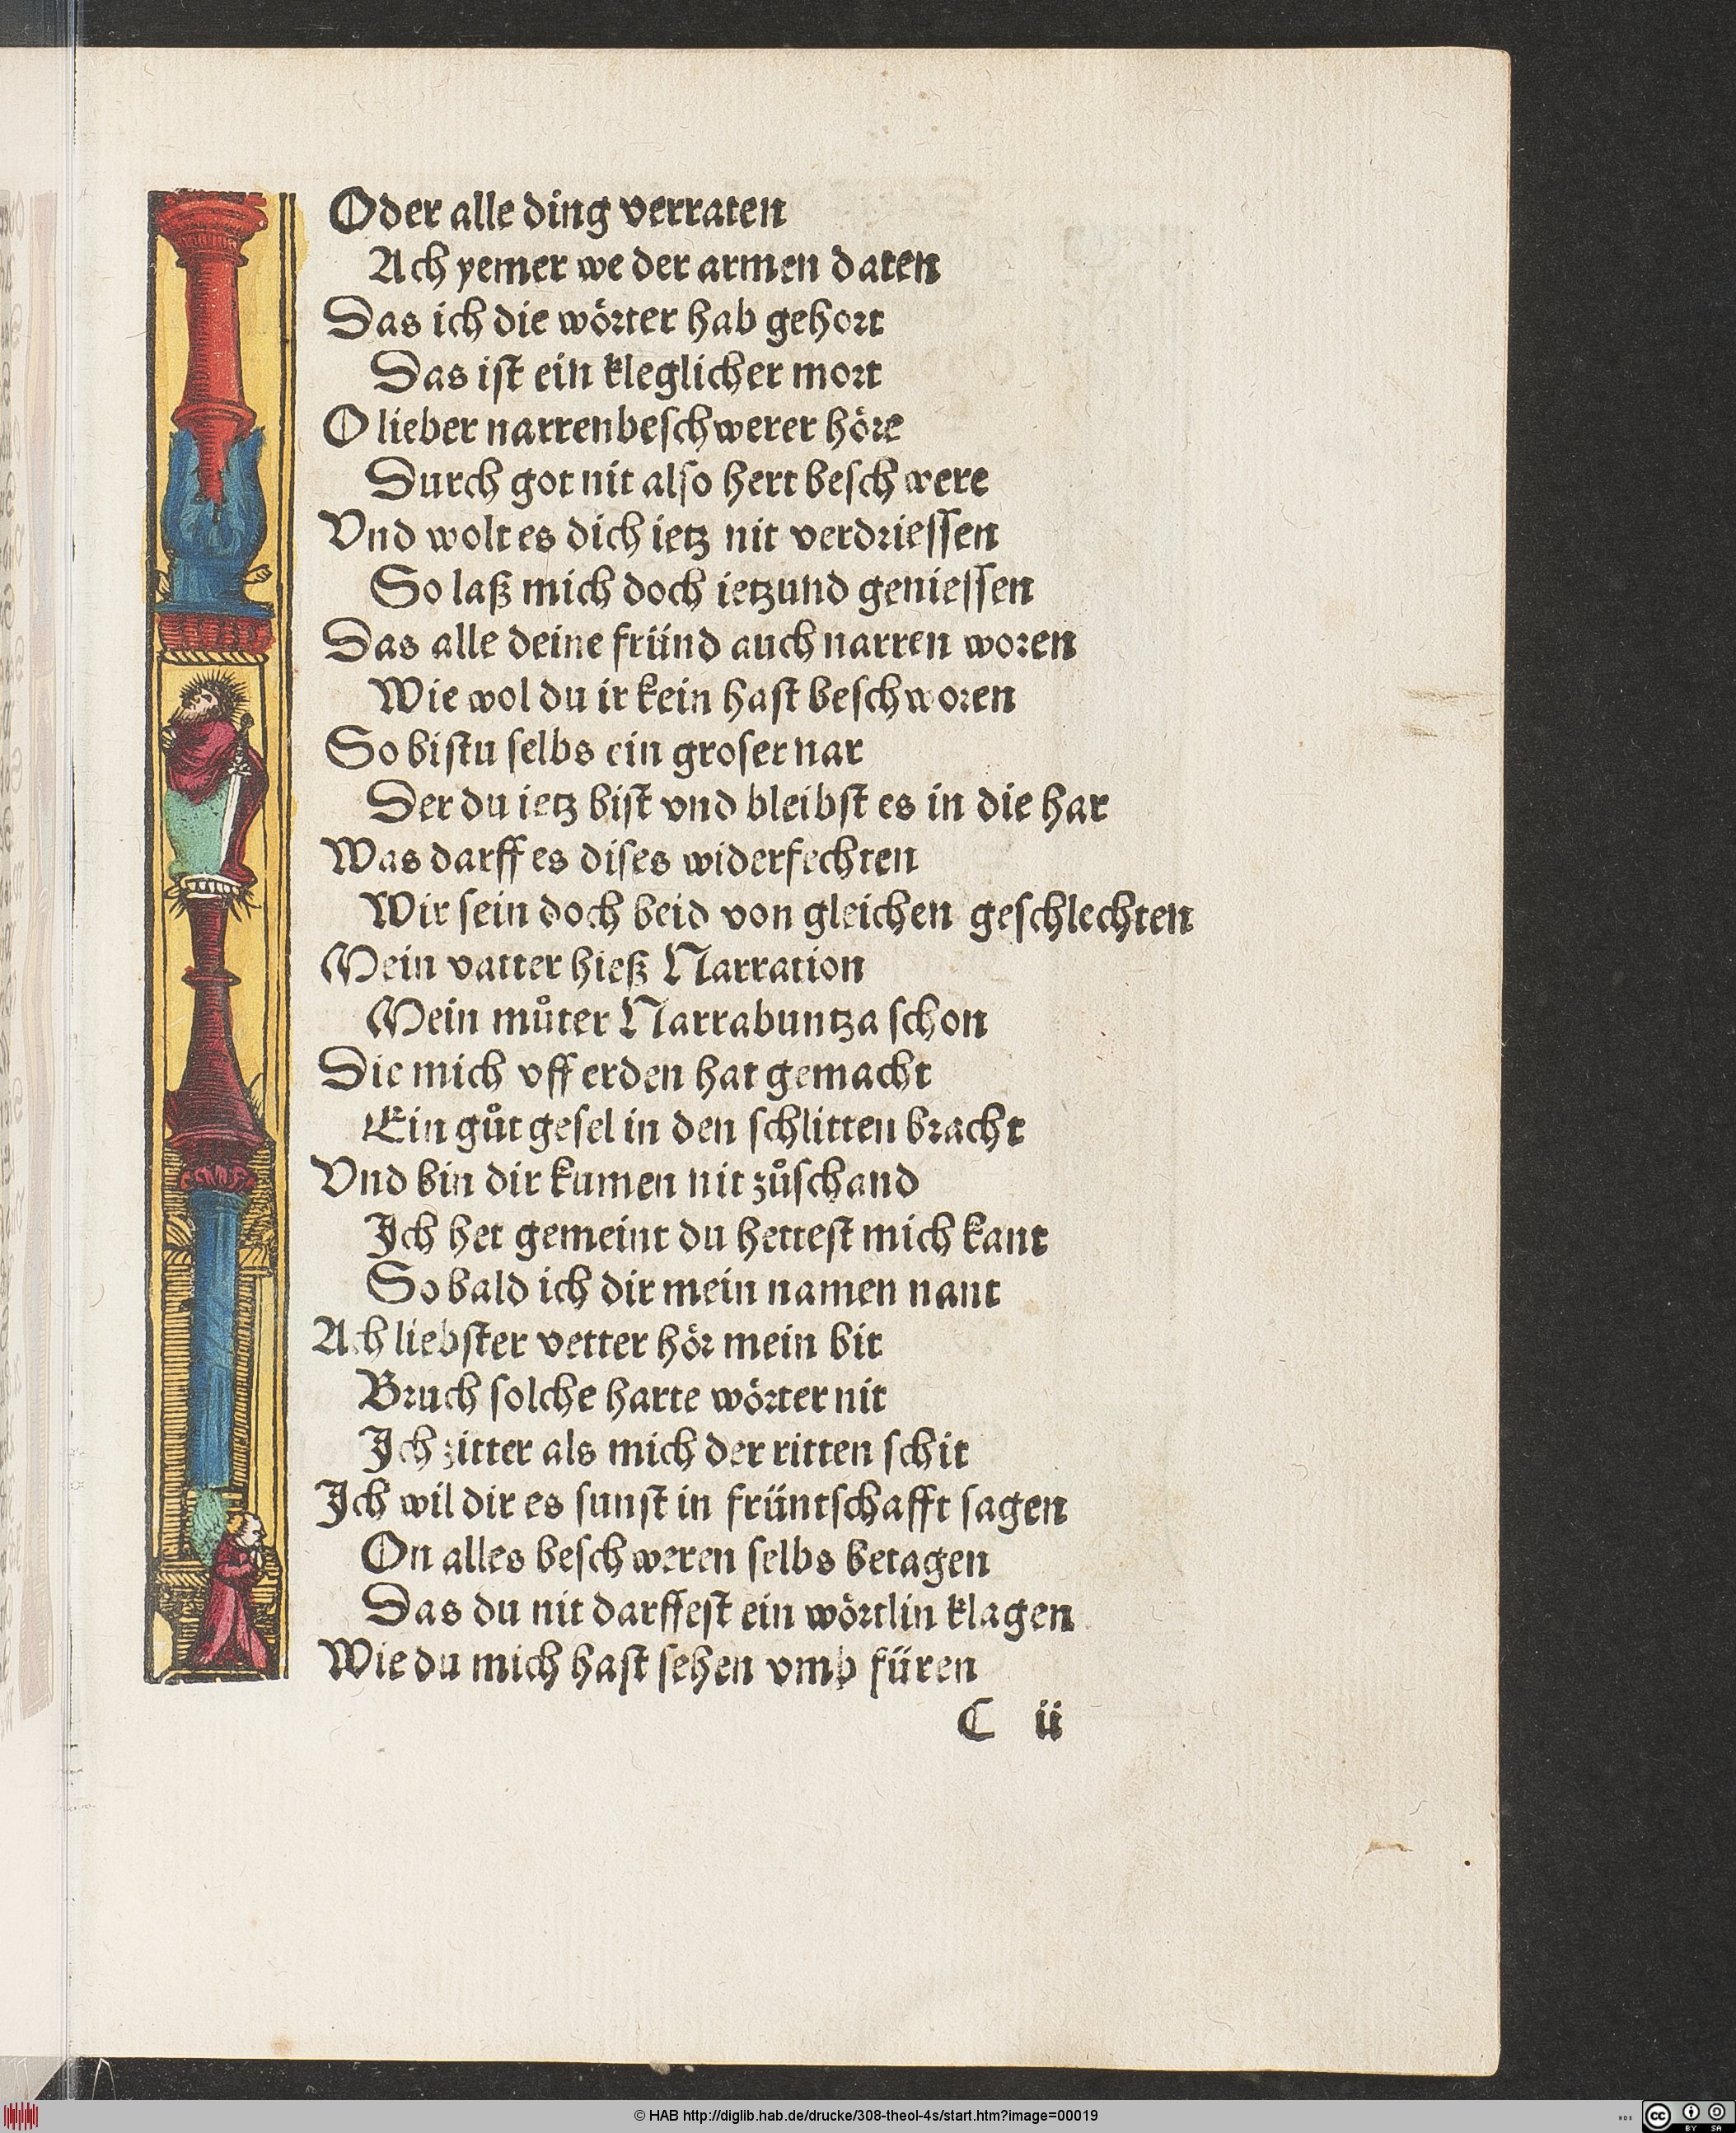 Oder alle ding verraten
Ach yemer we der armen daten
Das ich die wörter hab gehort
Das iſt ein kleglicher mort
O lieber narrenbeſchwerer höre
Durch got nit alſo hert beſchwere
Vnd wolt es dich ietz nit verdrieſſen
So laß mich doch ietzund genieſſen
Das alle deine fründ auch narren woren
Wie wol du ir kein haſt beſchworen
So biſtu ſelbs ein groſer nar
Der du ietz biſt vnd bleibſt es in die har
Was darff es diſes widerfechten
Wir ſein doch beid von gleichen geſchlechten
Mein vatter hieß Narration
Mein můter Narrabuntza ſchon
Die mich vff erden hat gemacht
Ein gůt geſel in den ſchlitten bracht
Vnd bin dir kumen nit zůſchand
Ich het gemeint du hetteſt mich kant
So bald ich dir mein namen nant
Ach liebſter vetter hör mein bit
Bruch ſolche harte wörter nit
Ich zitter als mich der ritten ſchit
Ich wil dir es ſunſt in früntſchafft ſagen
On alles beſchweren ſelbs betagen
Das du nit darffeſt ein wörtlin klagen
Wie du mich haſt ſehen vmb füren
C ii
© HAB http://diglib.hab.de/drucke/308-theol-4s/start.htm?image=00019
cc BY SA